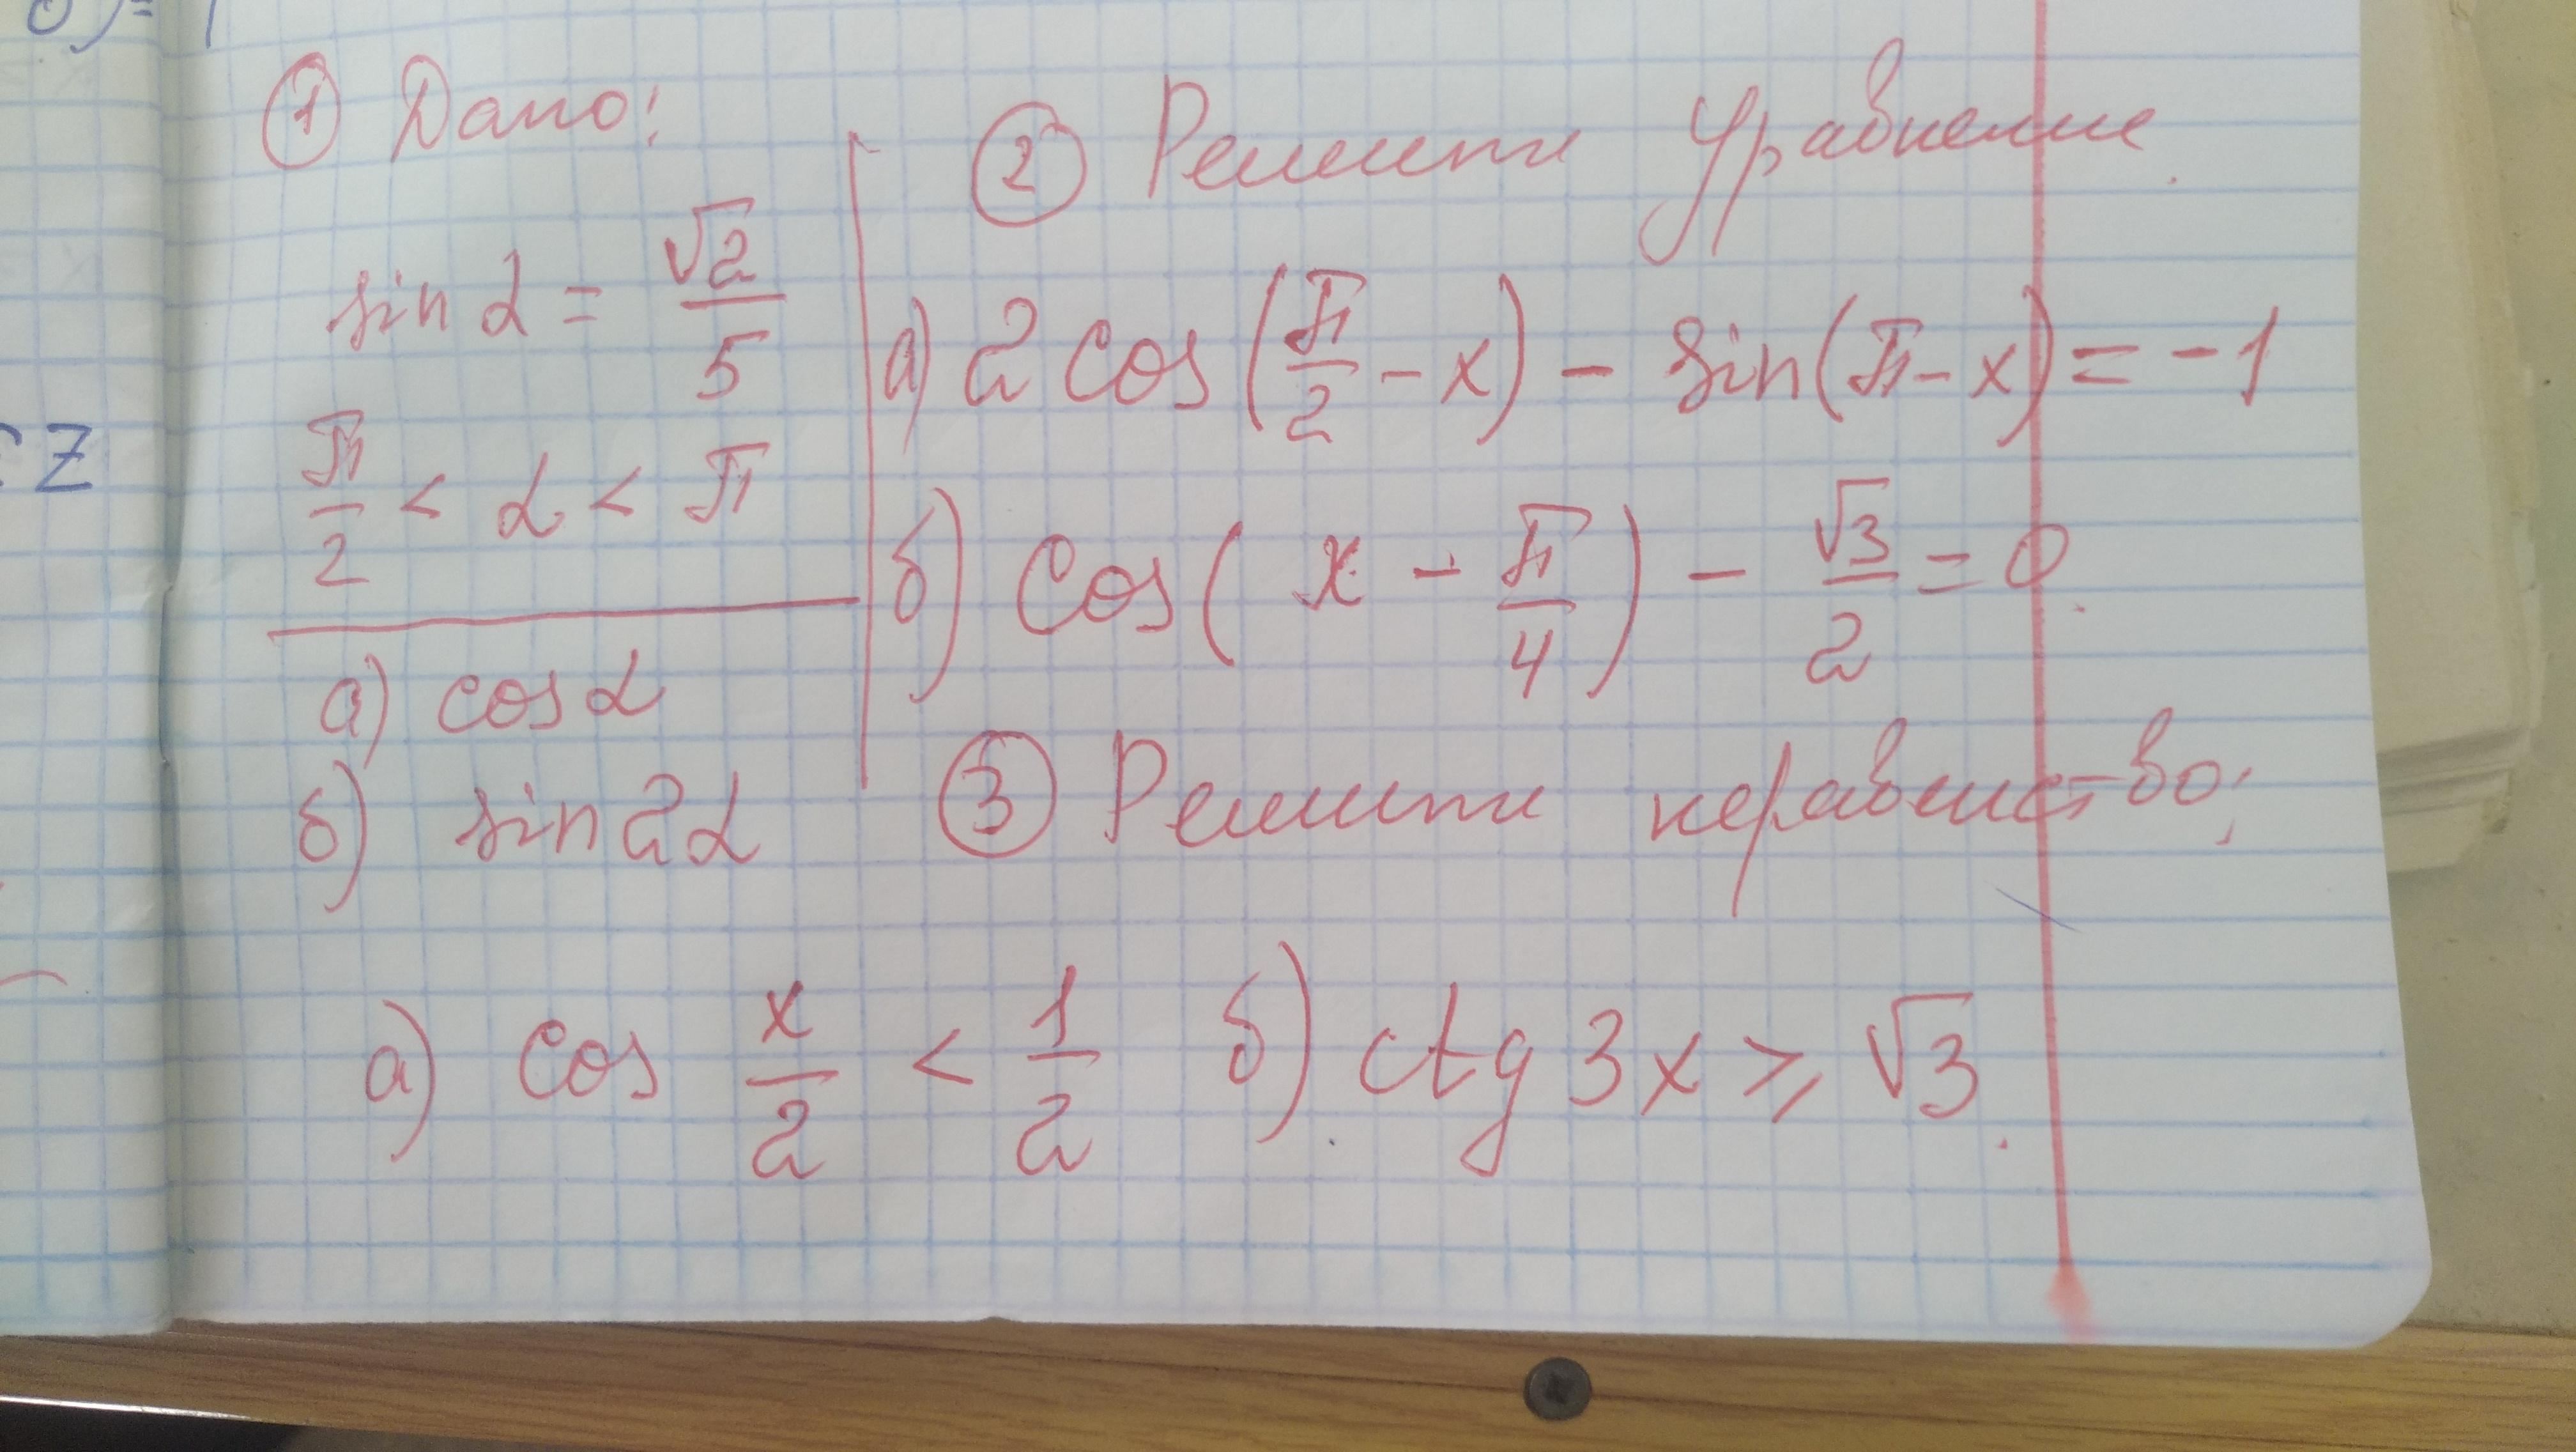 ① Дано:
sin α = √2/5
π/2 < α < π
а) cos α
б) sin 2α
② Решить уравнение.
а) 2 cos(π/2 - x) - sin(π - x) = -1
б) cos(x - π/4) - √3/2 = 0.
③ Решить неравенство:
а) cos x/2 < 1/2 б) ctg 3x ⩾ √3.
Z